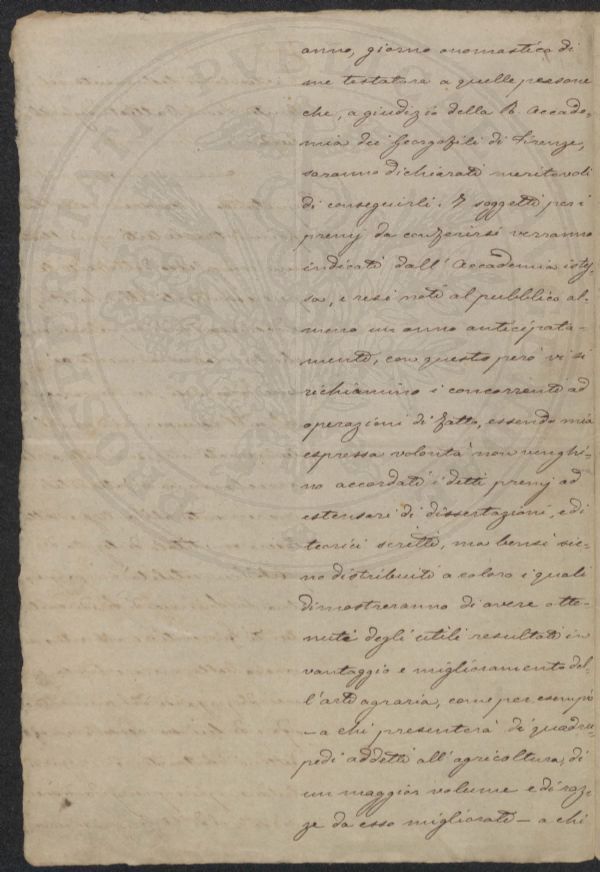 anno, giorno onomastico di
me testatore a quelle persone
che, a giudizio della R. Accade-
mia dei Georgofili di Firenze,
saranno dichiarati meritevoli
di conseguirli. I soggetti per i
premj da conferirsi verranno
indicati dall'Accademia istes-
sa, e resi noti al pubblico al-
meno un anno anticipata-
mente, con questo però vi si
richiamino i concorrenti ad
operazioni di fatto, essendo mia
espressa volontà non venghi-
no accordati i detti premj ad
estensori di dissertazioni, e di
teorici scritti, ma bensì sie-
no distribuiti a coloro i quali
dimostreranno di avere otte-
nuti degli utili resultati in
vantaggio e miglioramento del-
l'arte agraria, come per esempio
— a chi presenterà di quadru-
pedi addetti all'agricoltura, di
un maggior volume e di raz-
ze da esso migliorate — a chi